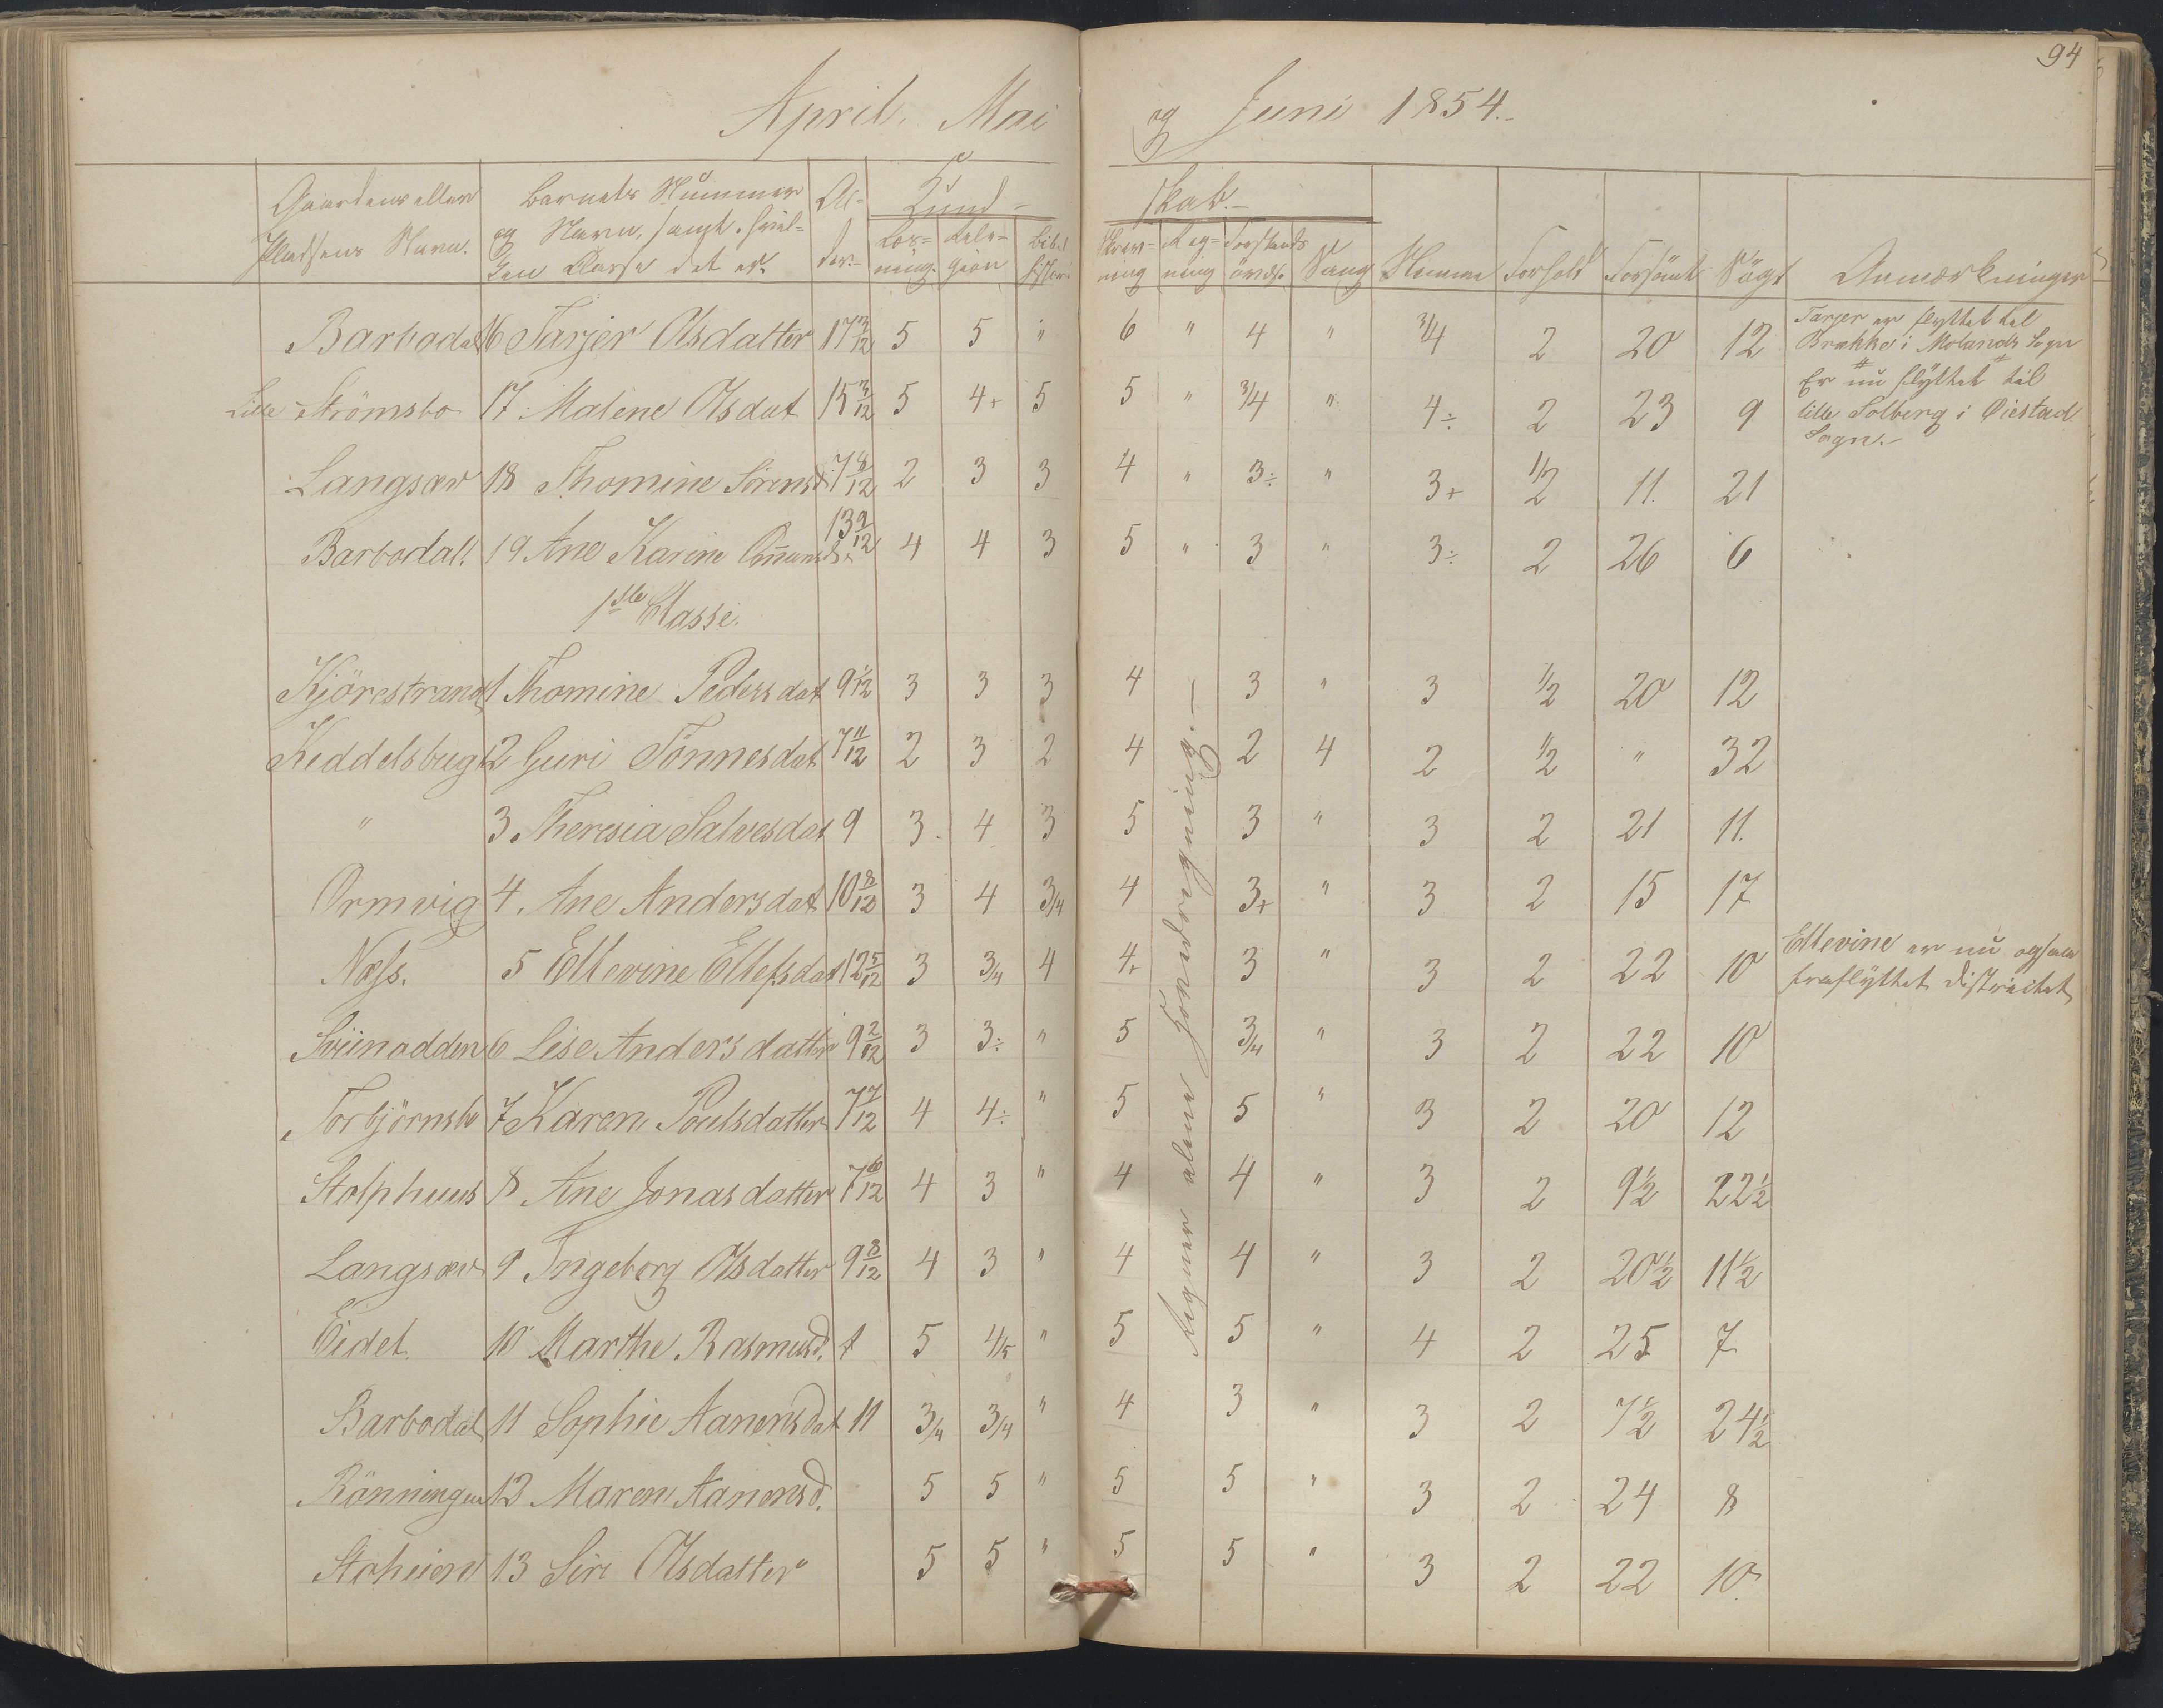 94
April, Mai og Juni 1854.-
Gaardens eller Pladsens Navn. Barnets Nummer og Navn, samt hvilken Classe det er. Alder.- Kundskab.-
Læsning. Religion Bibelhistor: Skrivning Regning Forstandsövelse Sang Nemme Forhold Forsömt Sögt Anmærkninger
Barbodal 16 Tarjer Olsdatter 17 3/12 5 5 " 6 " 4 " 3/4 2 20 12 Tarjer er flyttet til
Brække i Molands Sogn
Lille Strömsbo 17. Malene Olsdat 15 3/12 5 4+ 5 5 " 3/4 " 4÷ 2 23 9 Er nu flyttet til
lille Solberg i Öiestad
Sogn.-
Langsæv 18 Thomine Sörensd: 7 8/12 2 3 3 4 " 3÷ " 3+ 1/2 11. 21
Barbodal. 19 Ane Karine 13 9/12 4 4 3 5 " 3 " 3÷ 2 26 6
1ste Classe.
Kjörestrand 1 Thomine Pedersdat 9 1/12 3 3 3 4 3 " 3 1/2 20 12
Keddelsbugt 2 Guri Tönnesdat 7 11/12 2 3 2 4 2 4 2 1/2 " 32
" 3. Theresia Salvesdat 9 3. 4 3 5 3 " 3 2 21 11.
Ormvig 4. Ane Andersdat 10 8/12 3 4 3/4 4 3+ " 3 2 15 17
Næss. 5 Ellevine Ellefsdat 12 5/12 3 3/4 4 4+ 3 " 3 2 22 10 Ellevine er nu ogsaa
fraflyttet Districtet
Sviinodden 6 Lise Andersdatter 9 2/12 3 3÷ " 5 3/4 " 3 2 22 10
Torbjörnsbo 7 Karen Poulsdatter 7 9/12 4 4÷ " 5 5 " 3 2 20 12
Stolphuus 8 Ane Jonasdatter 7 6/12 4 3 " 4 4 " 3 2 9 1/2 22 1/2
Langsæv 9 Ingeborg Olsdatter 9 8/12 4 3 " 4 4 " 3 2 20 1/2 11 1/2
Eidet. 10 Marthe Rasmusd. 5 4/5 " 5 5 " 4 2 25 7
Barbodal 11 Sophie Aanonsdat 11 3/4 3/4 " 4 3 " 3 2 7 1/2 24 1/2
Rönningen 12 Maren Aanonsd. 5 5 " 5 5 " 3 2 24 8
Stoheien 13 Siri Olsdatter 5 5 " 5 5 " 3 2 22 10.
Regner alene Hovedregning.-